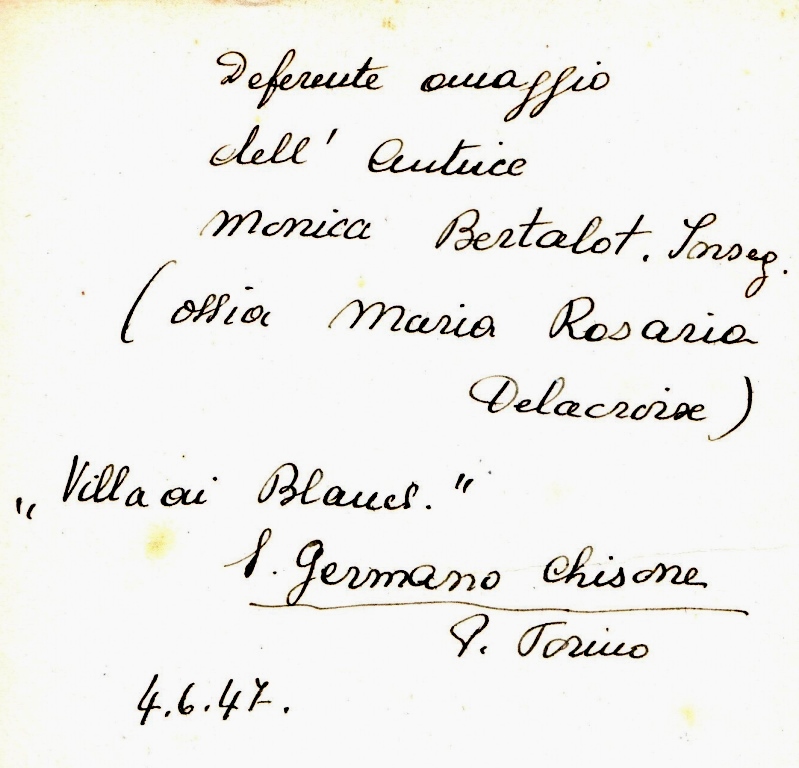 Deferente omaggio
dell' Autrice
Monica Bertalot. Inseg.
(ossia Maria Rosaria
Delacroix)
„Villa ai Blancs."
S. Germano Chisone
P. Torino
4.6.47.